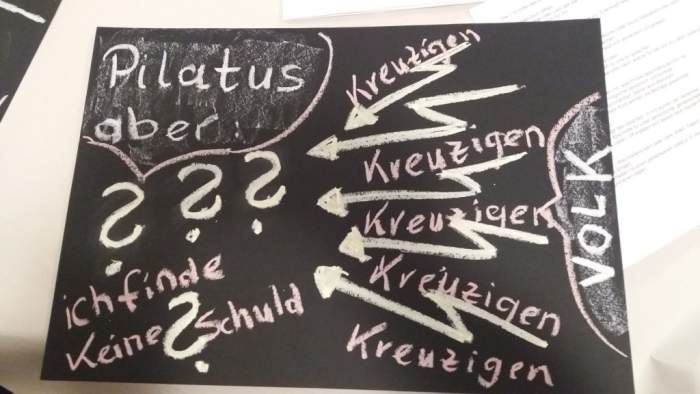 Pilatus
aber:
? ? ?
ich finde
Keine ? Schuld
Kreuzigen
Kreuzigen
Kreuzigen
Kreuzigen
Kreuzigen
VOLK